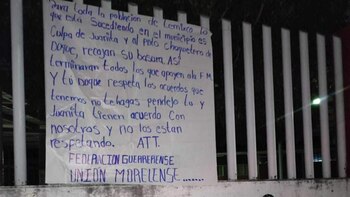 Para toda la población de Temixco lo
que esta Sucediendo en el municipio es
Culpa de Juanita y al puto chaquetero de
Duque, recojan su basura ASI
terminaran todos los que apoyen ala F.M
Y tú Duque respeta los acuerdos que
tenemos no tehagas pendejo tu y
Juanita tienen acuerdo Con
nosotros y no los estan
respetando. ATT.
FEDERACION GUERRERENSE
UNION MORELENSE.......